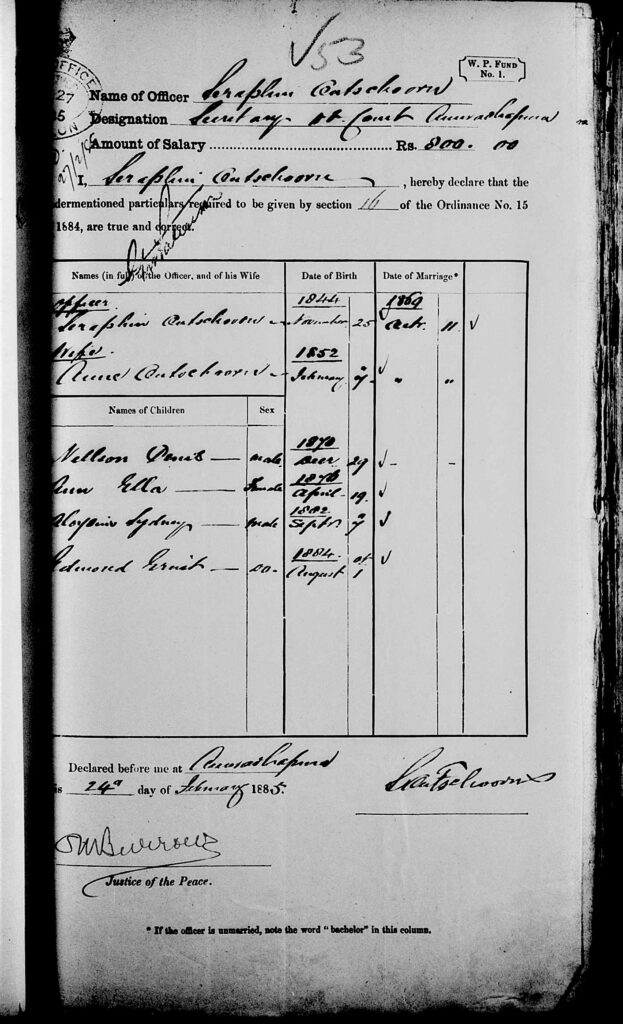 √53
W. P. FUND
No. 1.
OFFICE
27
5
ON
27/2/85
Name of Officer Seraphin Outschoorn
Designation Secretary Dt. Court Anuradhapura
Amount of Salary Rs. 800. 00
I, Seraphin Outschoorn, hereby declare that the
dermentioned particulars required to be given by section 16 of the Ordinance No. 15
1884, are true and correct.
Names (in full) of the Officer, and of his Wife Date of Birth Date of Marriage*
officer 1844 1869
Seraphin Outschoorn November 25 11 √
Wife. 1852
Anne Outschoorn February 7 √ " "
Names of Children Sex
1870
Nellson Denis — male Decr 29 √ - -
187
Ann Ella — Female April 19 √
1882
Aloysius Sydney — male Septr 7 √
1884
Edmond Ernest — do. August 1 √
Declared before me at Anuradhapura
is 24 day of February 1885.
S Outschoorn
Justice of the Peace.
* If the officer is unmarried, note the word "bachelor" in this column.